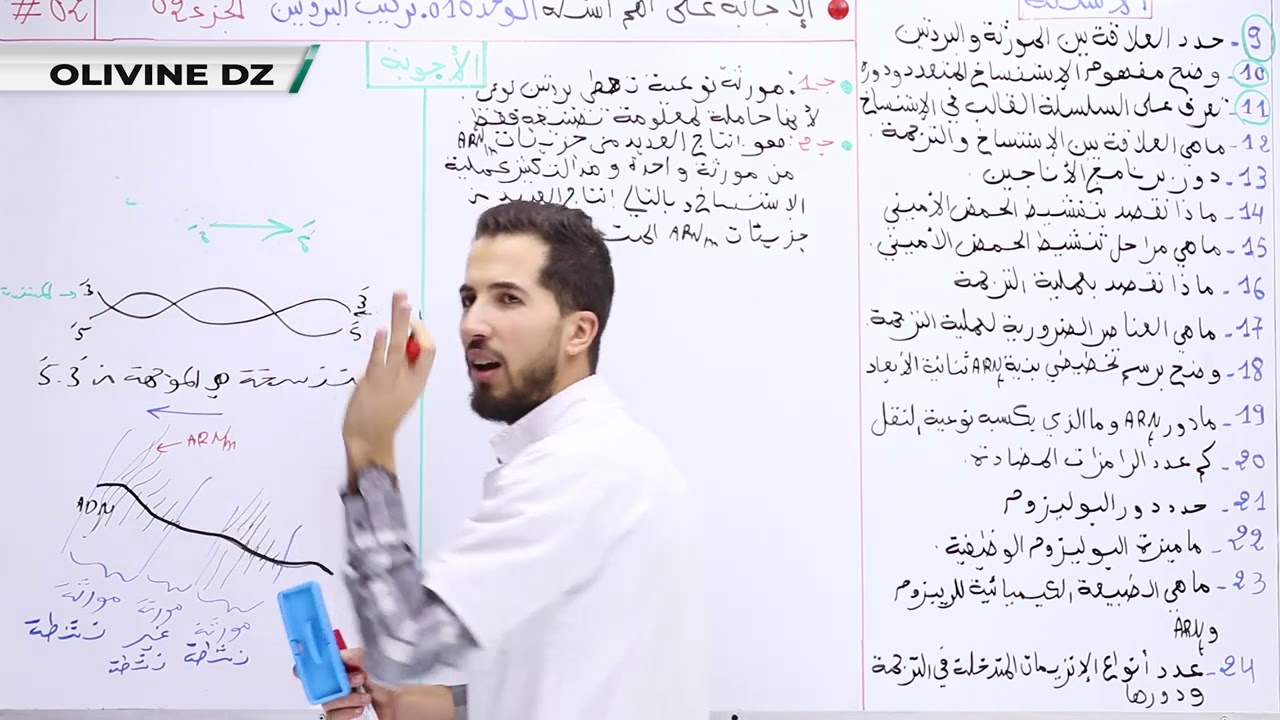 OLIVINE DZ
#02
الجزء 02
الإجابة على أهم أسئلة الوحدة 01. تركيب البروتين
الأسئلة
9- حدد العلاقة بين المورثة والبروتين
10- وضح مفهوم الإستنساخ المتعدد ودوره
11- تعرف على السلسلة القالب في الإستنساخ
12- ماهي العلاقة بين الإستنساخ والترجمة.
13- دور برنامج الأناجين.
14- ماذا نقصد بتنشيط الحمض الأميني
15- ماهي مراحل تنشيط الحمض الأميني.
16- ماذا نقصد بعملية الترجمة
17- ماهي العناصر الضرورية لعملية الترجمة.
18- وضح برسم تخطيطي بنية ARNt ثنائية الأبعاد
19- مادور ARNt وما الذي يكسبه نوعية لنقل
20- كم عدد الرامزات المضادة.
21- حدد دور البوليزوم
22- ماميزة البوليزوم الوظيفية.
23- ماهي الطبيعة الكيميائية للريبزوم
و ARNt
24- عدد أنواع الإنزيمات المتدخلة في الترجمة
ودورها
الأجوبة
ج1: مورثة نوعية تعطي بروتين نوعي
لأنها حاملة لمعلومة تصنعه فقط
ج2: هو إنتاج العديد من جزيئات ARNm
من مورثة واحدة و عملية
الاستنساخ وبالتالي إنتاج العديد من
جزيئات ARNm
3' 3'
5' 5'
هي الموجهة من 3' 5'
ARNm
ADN
مورثة مورثة مورثة
نشطة غير نشطة
نشطة